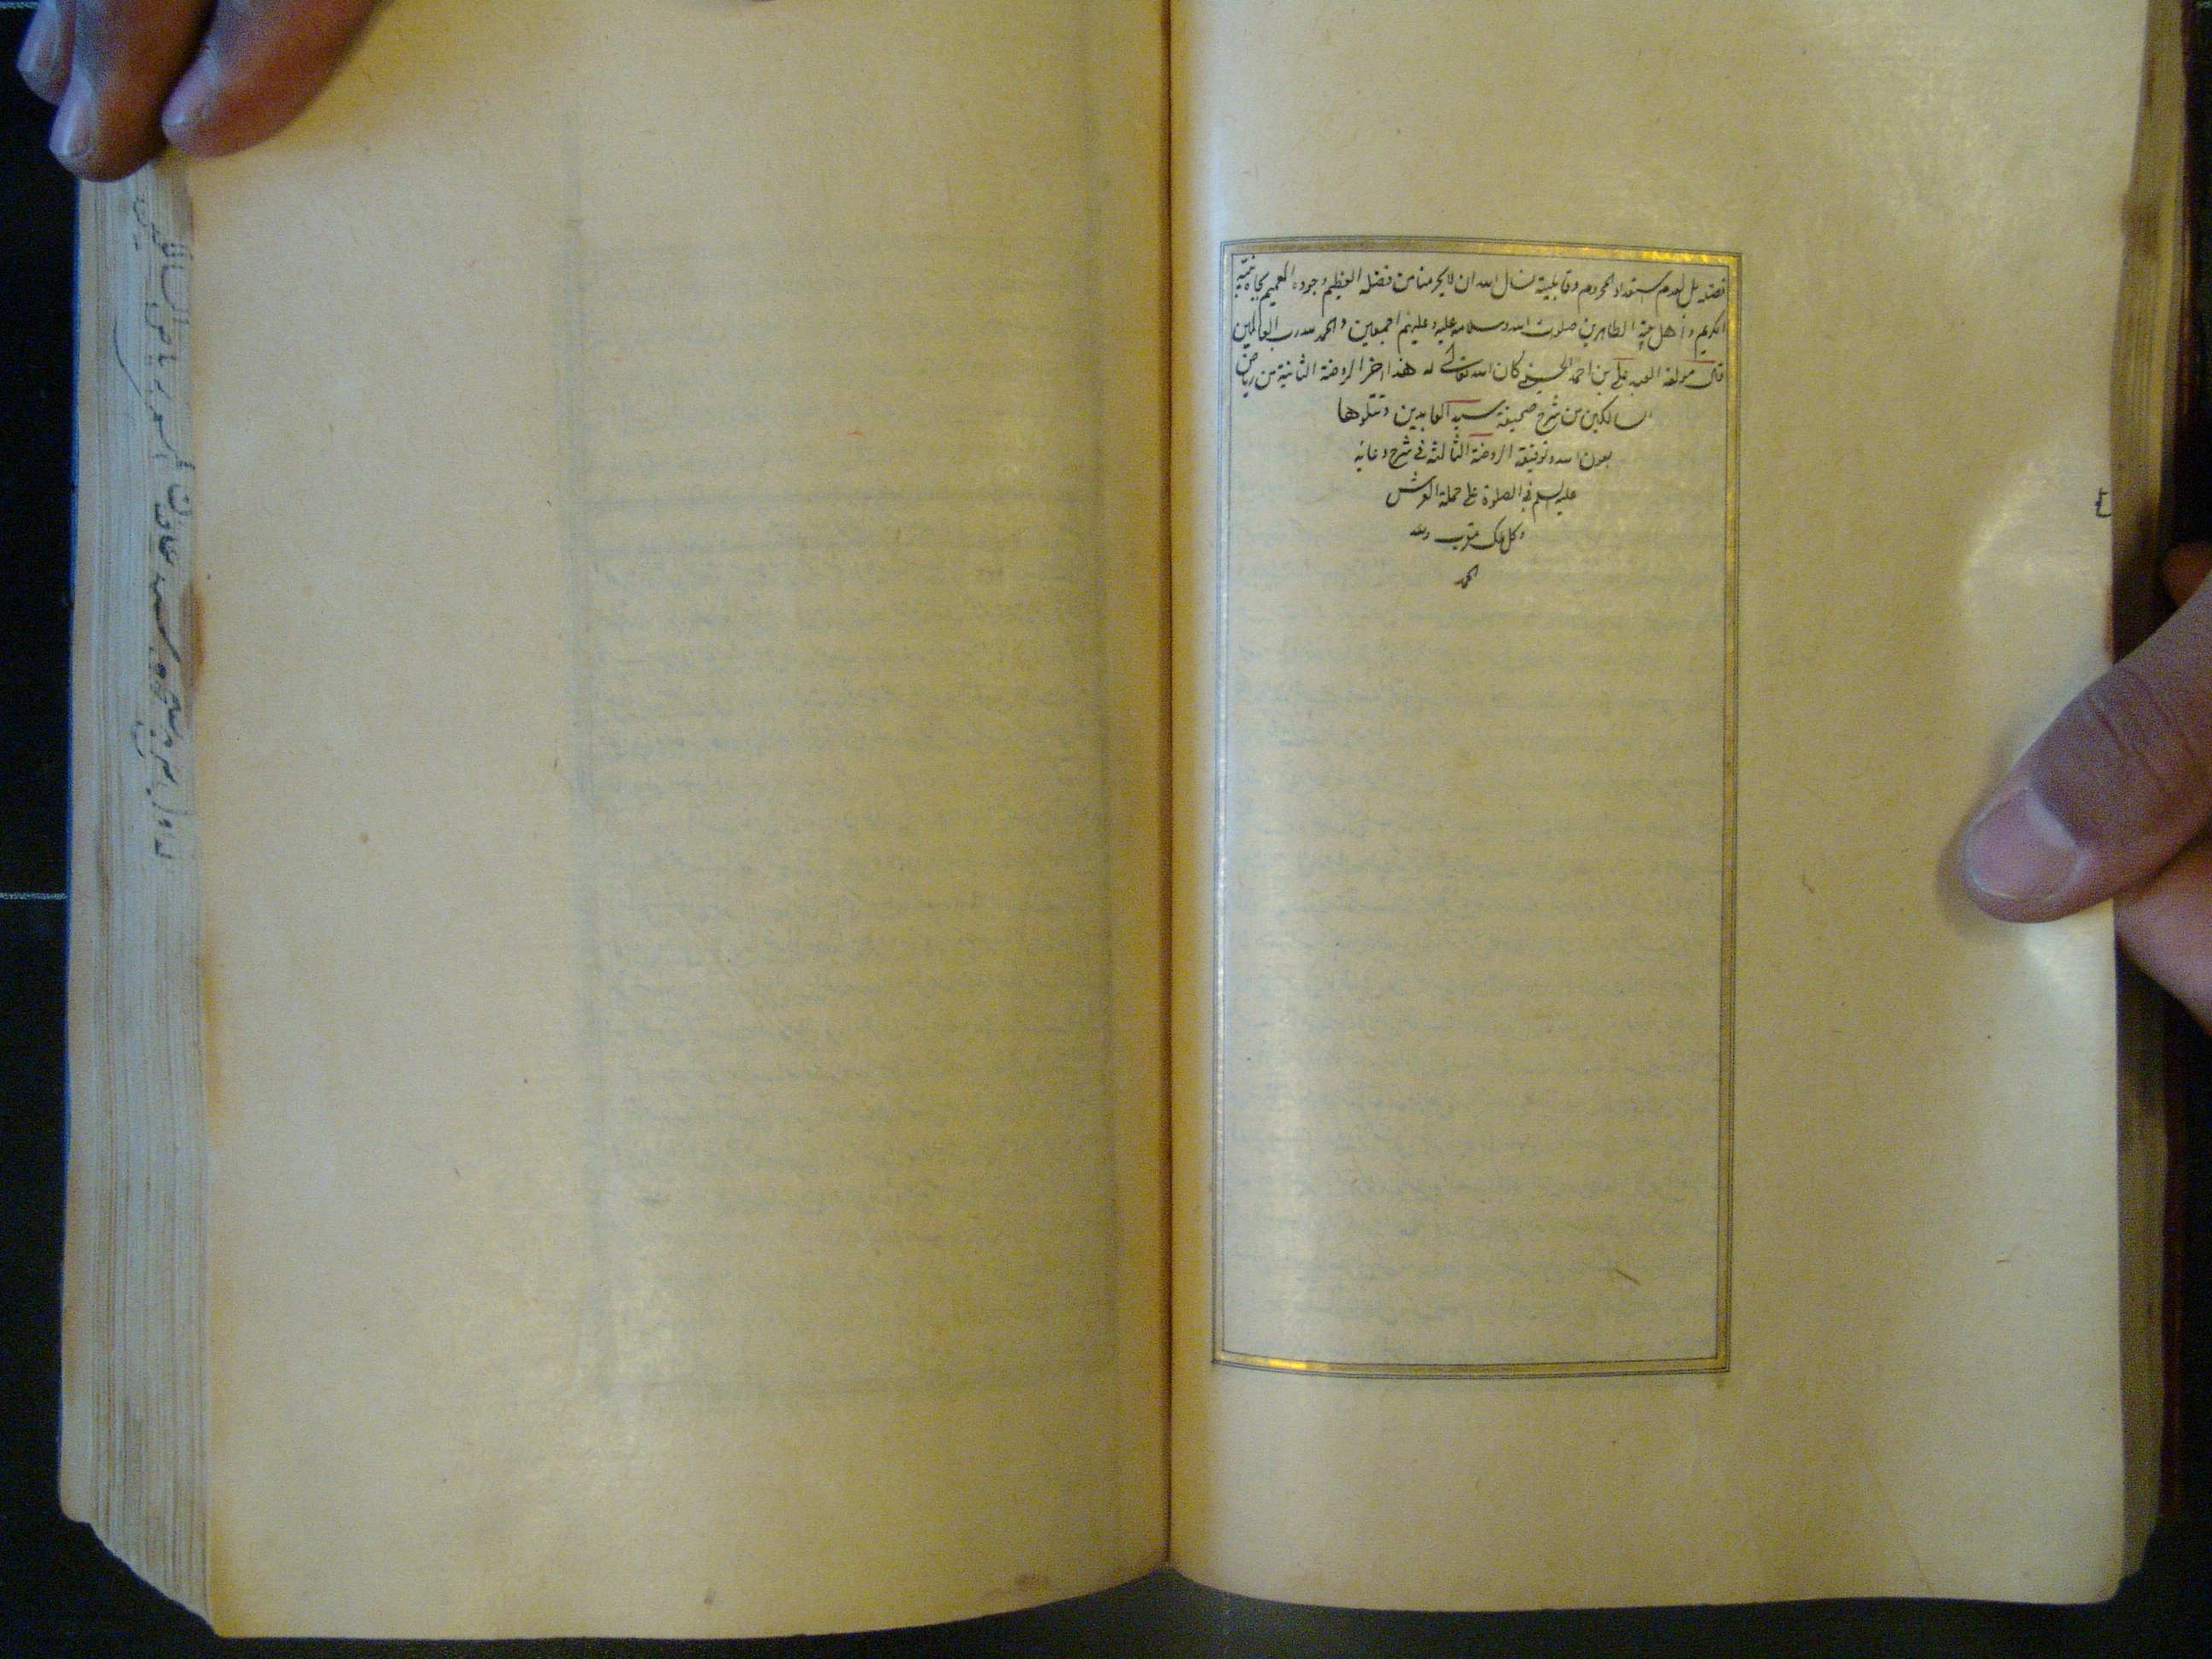 فضله بل لعدم استعداد المحروم وقابليته نسال الله ان لا يحرمنا من فضله العظيم وجوده العميم بجاه نبيه
الكريم واهل بيته الطاهرين صلوات الله وسلامه عليه وعليهم اجمعين والحمد لله رب العالمين
قال مولفه العبد علي بن احمد الحسيني كان الله تعالى له هذا اخر الروضة الثانية من رياض
السالكين من شرح صحيفة سيد العابدين وتتلوها
بعون الله وتوفيقه الروضة الثالثة في شرح دعائه
عليه السلم في الصلوة على حملة العرش
وكل ملك مقرب ولله
الحمد